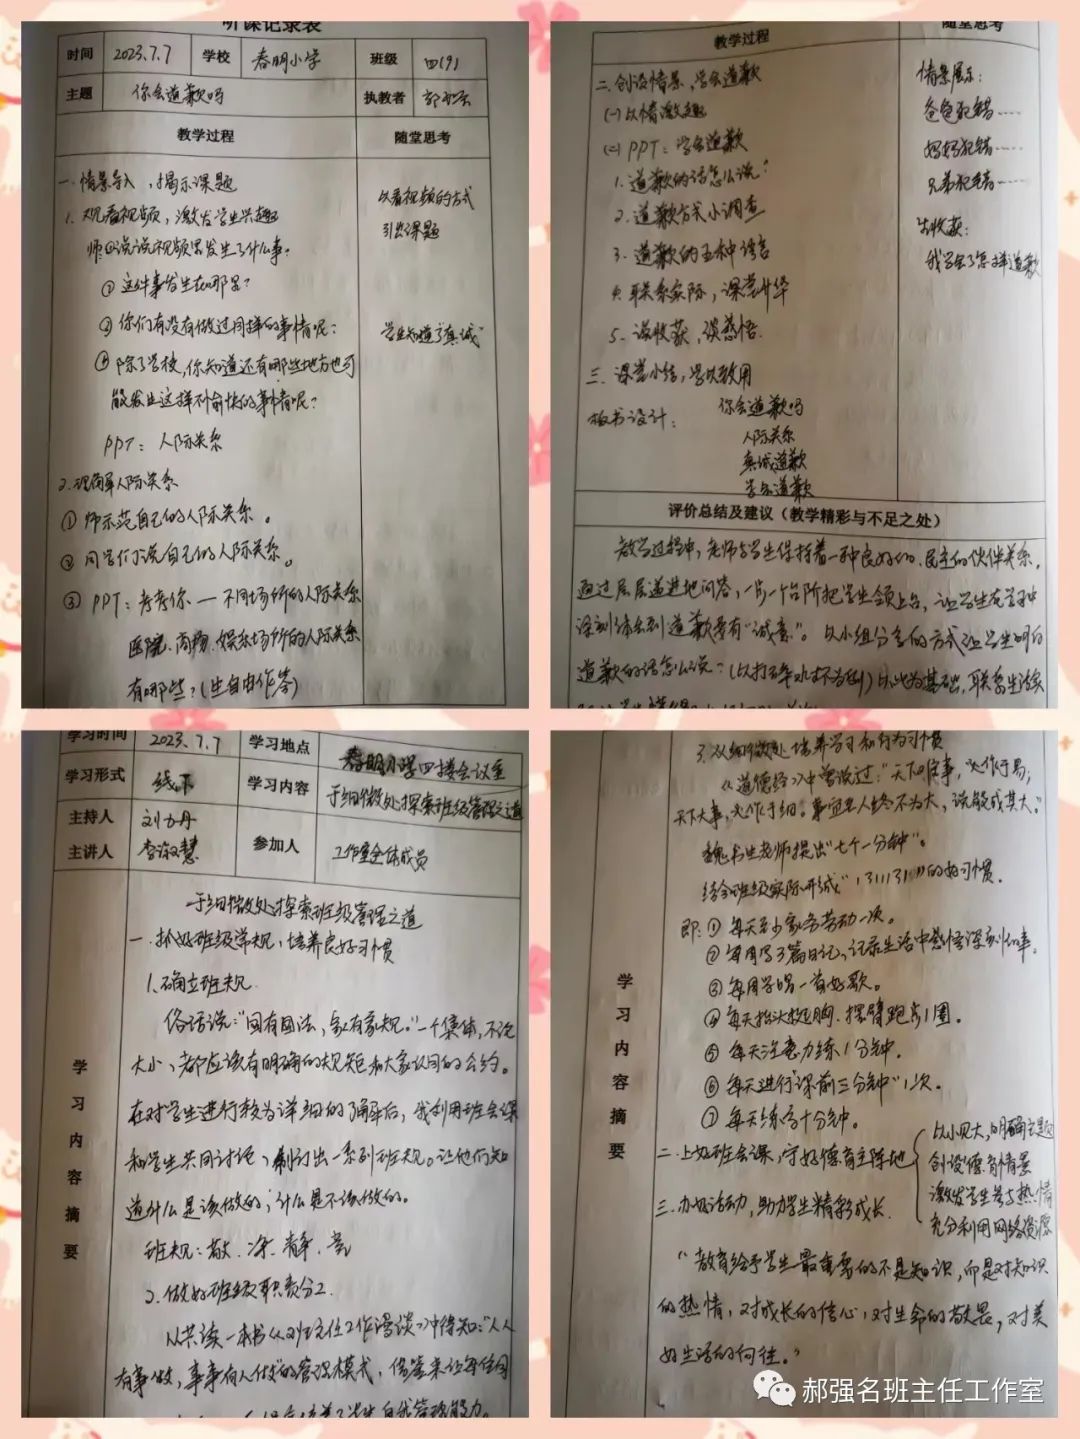 听课记录表
时间 2023.7.7 学校 春明小学 班级 四(9)
主题 你会道歉吗 执教者
教学过程 随堂思考
一.情景导入,揭示课题
1.观看视频,激发学生兴趣
师:说说视频里发生了什么事?
①这件事发生在哪里?
②你们有没有做过同样的事情呢?
③除了学校,你知道还有哪些地方也可
能发生这样不愉快的事情呢?
PPT:人际关系
2.理解人际关系
①师示范自己的人际关系。
②同学们说自己的人际关系。
③PPT:考考你—不同场所的人际关系
医院、商场、娱乐场所的人际关系
有哪些?(生自由作答)
以看视频的方式
引出课题
学生知道了"真诚"
教学过程 随堂思考
二.创设情景,学会道歉
(一)以情激趣
(二)PPT:学会道歉
1.道歉的话怎么说?
2.道歉方式小调查
3.道歉的五种语言
4.联系实际,课堂升华
5.谈收获,谈感悟.
三.课堂小结,学以致用
板书设计: 你会道歉吗
人际关系
真诚道歉
学会道歉
情景展示:
爸爸犯错……
妈妈犯错……
兄弟犯错……
生收获:
我学会了怎样道歉
评价总结及建议(教学精彩与不足之处)
教学过程中,老师与学生保持着一种良好的、民主的伙伴关系,
通过层层递进地问答,一步一个台阶把学生领上台,让学生在学习中
深刻体会到道歉要有"诚意"。以小组分享的方式让学生明白
道歉的话怎么说?(以打碎水杯为例)以此为基础,联系生活实
学习时间 2023.7.7 学习地点 春明小学四楼会议室
学习形式 线下 学习内容 于细微处探索班级管理之道
主持人
主讲人 李淑慧 参加人 工作室全体成员
学习内容摘要
于细微处探索班级管理之道
一.抓好班级常规,培养良好习惯
1.确立班规.
俗话说:"国有国法,家有家规。"一个集体,不论
大小,都应该有明确的规矩和大家认同的公约。
在对学生进行较为详细的了解后,我利用班会课
和学生共同讨论,制订出一系列班规。让他们知
道什么是该做的,什么是不该做的。
班规:敬.净.静.竞
2.做好班级职责分工.
从共读一本书《班主任工作漫谈》中得知:"人人
有事做,事事有人做"的管理模式,
3.从细微处培养学习和行为习惯
《道德经》中曾说过:"天下难事,必作于易;
天下大事,必作于细。事宜圣人终不为大,故能成其大。"
魏书生老师提出"七个一分钟"。
结合班级实际形成"1311131"的好习惯.
即:①每天至少家务劳动一次。
②每周写3篇日记,记录生活中感悟深刻的事。
③每周学唱一首好歌。
④每天抬头挺胸.摆臂跑步1圈。
⑤每天注意力练1分钟.
⑥每天进行"课前三分钟"1次。
⑦每天练字十分钟。
二.上好班会课,守好德育主阵地
以小见大,明确主题
创设德育情景
激发学生参与热情
充分利用网络资源
三.办好活动,助力学生精彩成长.
"教育给予学生最重要的不是知识,而是对知识
的热情,对成长的信心,对生命的敬畏,对美
好生活的向往。"
学习内容摘要
郝强名班主任工作室